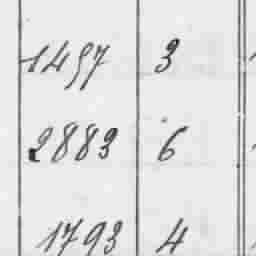 1457 3
2883 6
1793 4